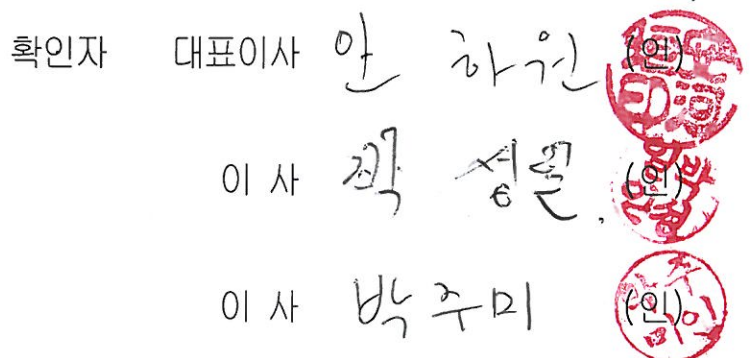 확인자 대표이사 안 하원 (인)
이 사 곽 성문 (인)
이 사 박주미 (인)